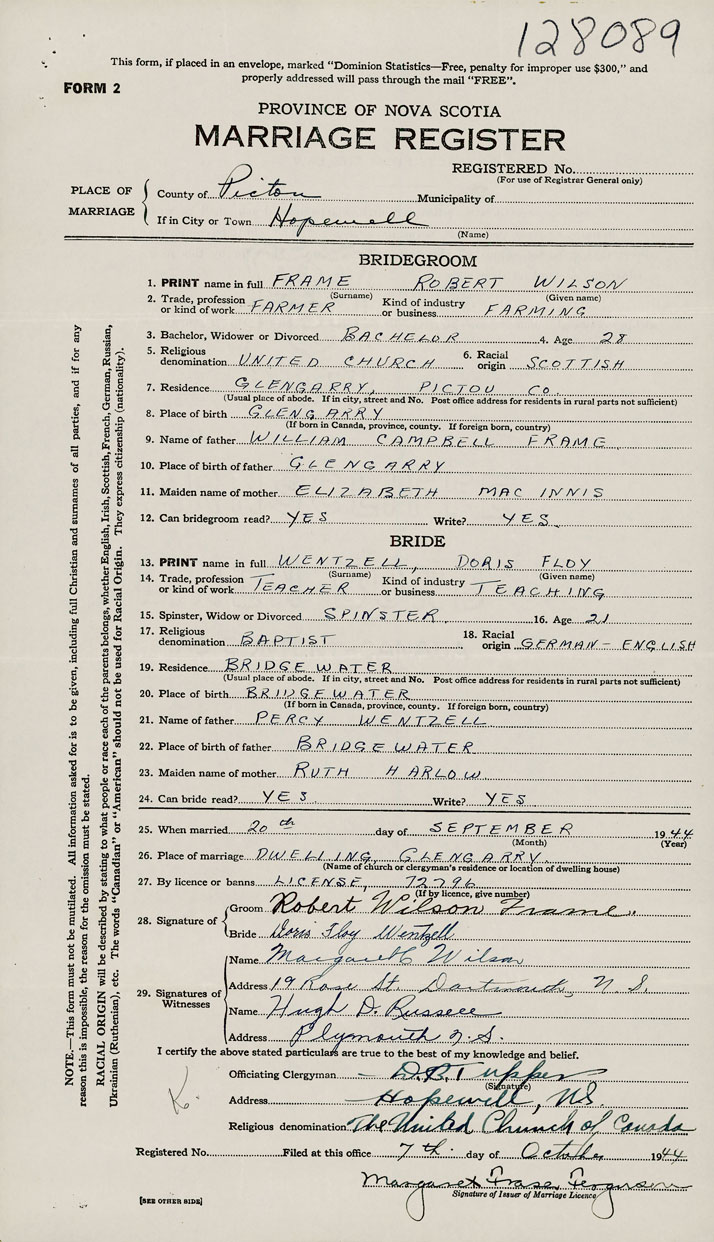 128089
This form, if placed in an envelope, marked "Dominion Statistics—Free, penalty for improper use $300," and
properly addressed will pass through the mail "FREE".
FORM 2
PROVINCE OF NOVA SCOTIA
MARRIAGE REGISTER
REGISTERED No.
(For use of Registrar General only)
PLACE OF MARRIAGE
County of Pictou Municipality of
If in City or Town Hopewell
(Name)
BRIDEGROOM
1. PRINT name in full FRAME ROBERT WILSON
(Surname) (Given name)
2. Trade, profession or kind of work FARMER Kind of industry or business FARMING
3. Bachelor, Widower or Divorced BACHELOR 4. Age 28
5. Religious denomination UNITED CHURCH 6. Racial origin SCOTTISH
7. Residence GLENGARRY, PICTOU CO.
(Usual place of abode. If in city, street and No. Post office address for residents in rural parts not sufficient)
8. Place of birth GLENGARRY
(If born in Canada, province, county. If foreign born, country)
9. Name of father WILLIAM CAMPBELL FRAME
10. Place of birth of father GLENGARRY
11. Maiden name of mother ELIZABETH MAC INNIS
12. Can bridegroom read? YES Write? YES
BRIDE
13. PRINT name in full WENTZELL, DORIS FLOY
(Surname) (Given name)
14. Trade, profession or kind of work TEACHER Kind of industry or business TEACHING
15. Spinster, Widow or Divorced SPINSTER 16. Age 21
17. Religious denomination BAPTIST 18. Racial origin GERMAN - ENGLISH
19. Residence BRIDGEWATER
(Usual place of abode. If in city, street and No. Post office address for residents in rural parts not sufficient)
20. Place of birth BRIDGEWATER
(If born in Canada, province, county. If foreign born, country)
21. Name of father PERCY WENTZELL
22. Place of birth of father BRIDGEWATER
23. Maiden name of mother RUTH HARLOW
24. Can bride read? YES Write? YES
25. When married 20th day of SEPTEMBER 1944
(Month) (Year)
26. Place of marriage DWELLING, GLENGARRY
(Name of church or clergyman's residence or location of dwelling house)
27. By licence or banns LICENSE, 72796
(If by licence, give number)
28. Signature of
Groom Robert Wilson Frame
Bride Doris Floy Wentzell
29. Signatures of Witnesses
Name Margaret C Wilson
Address 19 Rose St. Dartmouth, N. S.
Name Hugh D. Russell
Address Plymouth N.S.
I certify the above stated particulars are true to the best of my knowledge and belief.
Officiating Clergyman D.B. Tupper
(Signature)
Address Hopewell, NS.
Religious denomination The United Church of Canada
Registered No. Filed at this office 7th day of October 1944
Margaret Ferguson
Signature of Issuer of Marriage Licence
[SEE OTHER SIDE]
K.
NOTE.—This form must not be mutilated. All information asked for is to be given, including full Christian and surnames of all parties, and if for any
reason this is impossible, the reason for the omission must be stated.
RACIAL ORIGIN will be described by stating to what people or race each of the parents belongs, whether English, Irish, Scottish, French, German, Russian,
Ukrainian (Ruthenian), etc. The words "Canadian" or "American" should not be used for Racial Origin. They express citizenship (nationality).